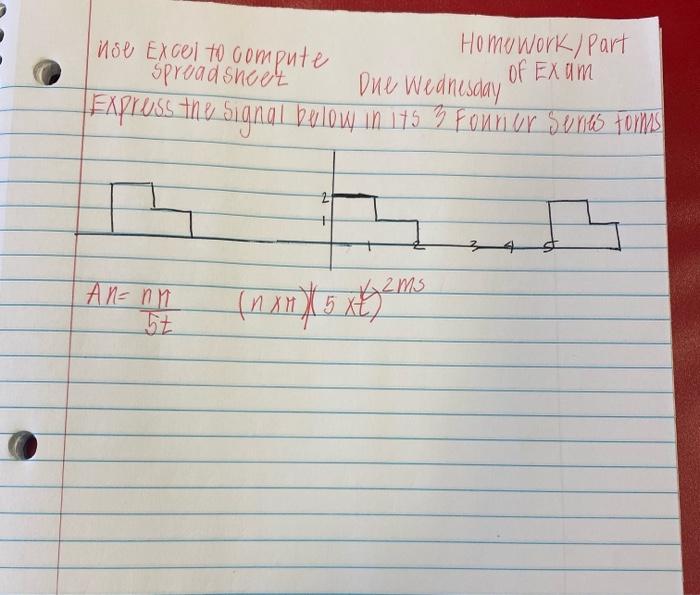 use Excel to compute
spreadsheet
Homework/Part
of Exam
Due Wednesday
Express the signal below in its 3 Fourier Series Forms
2
1
1 2 3 4 5
An= nπ
5t
(n x π)(5 x t) 2ms